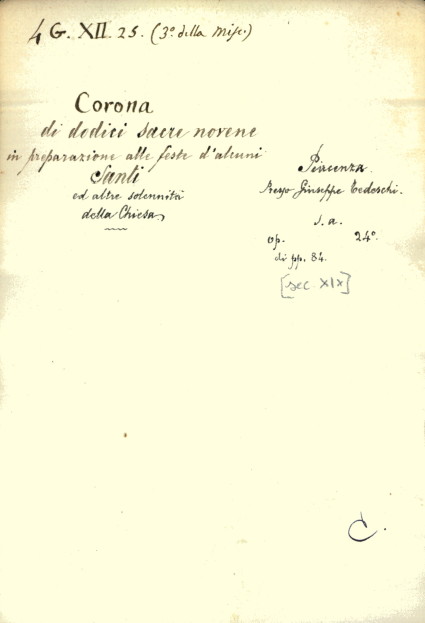 4 G. XII. 25. (3º della Misc.)
Corona
di dodici sacre novene
in preparazione alle feste d'alcuni
Santi
ed altre solennità
della Chiesa
Piacenza.
Presso Giuseppe Tedeschi.
s. a.
op. 24º.
di pp. 84.
[sec. XIX]
C.